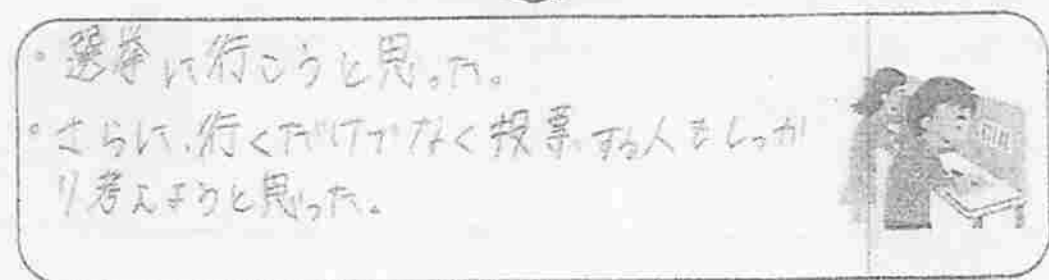 ・選挙に行こうと思った。
・さらに、行くだけでなく投票する人をしっか
り考えようと思った。